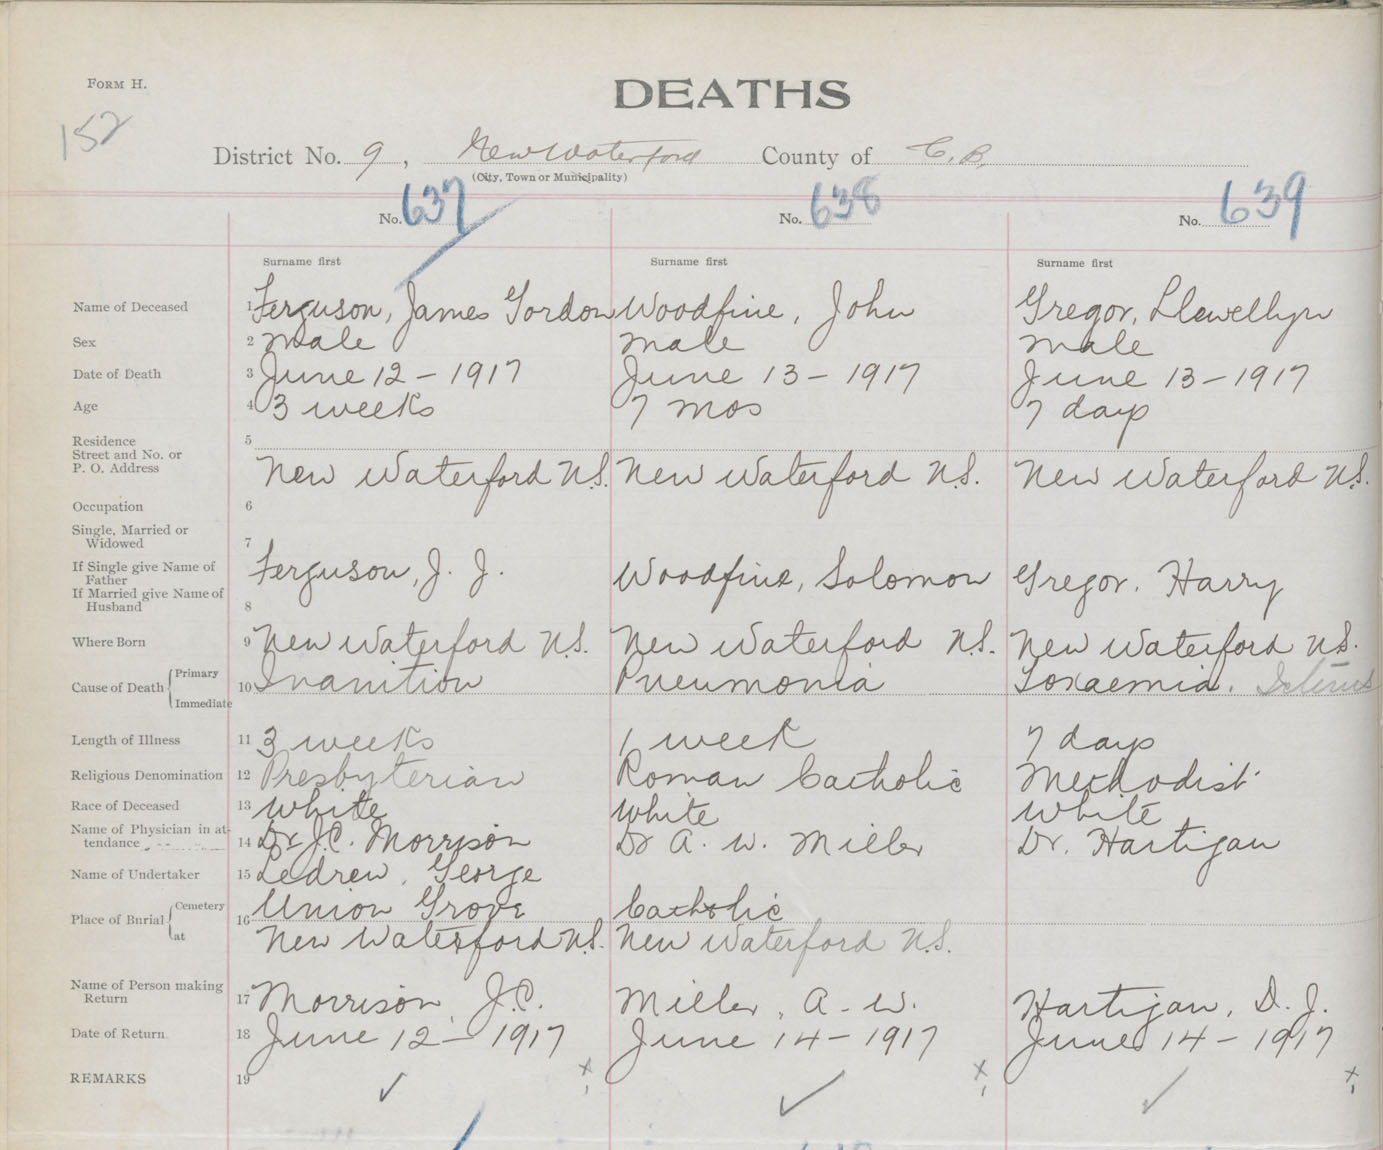 FORM H.
DEATHS
152
District No. 9, New Waterford County of C.B.
(City, Town or Municipality)
No. 637 No. 638 No. 639
Surname first Surname first Surname first
Name of Deceased 1 Ferguson, James Gordon Woodfine, John Gregor, Llewellyn
Sex 2 male male male
Date of Death 3 June 12 - 1917 June 13 - 1917 June 13 - 1917
Age 4 3 weeks 7 mos 7 days
Residence 5
Street and No. or
P. O. Address New Waterford N.S. New Waterford N.S. New Waterford N.S.
Occupation 6
Single, Married or
Widowed 7
If Single give Name of
Father Ferguson, J. J. Woodfine, Solomon Gregor, Harry
If Married give Name of
Husband 8
Where Born 9 New Waterford N.S. New Waterford N.S. New Waterford N.S.
Cause of Death { Primary 10 Inanition Pneumonia Toxaemia. Icterus
Immediate
Length of Illness 11 3 weeks 1 week 7 days
Religious Denomination 12 Presbyterian Roman Catholic Methodist
Race of Deceased 13 White White White
Name of Physician in at-
tendance 14 Dr. J.C. Morrison Dr A. W. Miller Dr. Hartigan
Name of Undertaker 15 Ledrew, George
Place of Burial { Cemetery 16 Union Grove Catholic
at New Waterford N.S. New Waterford N.S.
Name of Person making
Return 17 Morrison, J.C. Miller, A. W. Hartigan, D. J.
Date of Return 18 June 12 - 1917 June 14 - 1917 June 14 - 1917
REMARKS 19 ✓ x ✓ x ✓ x